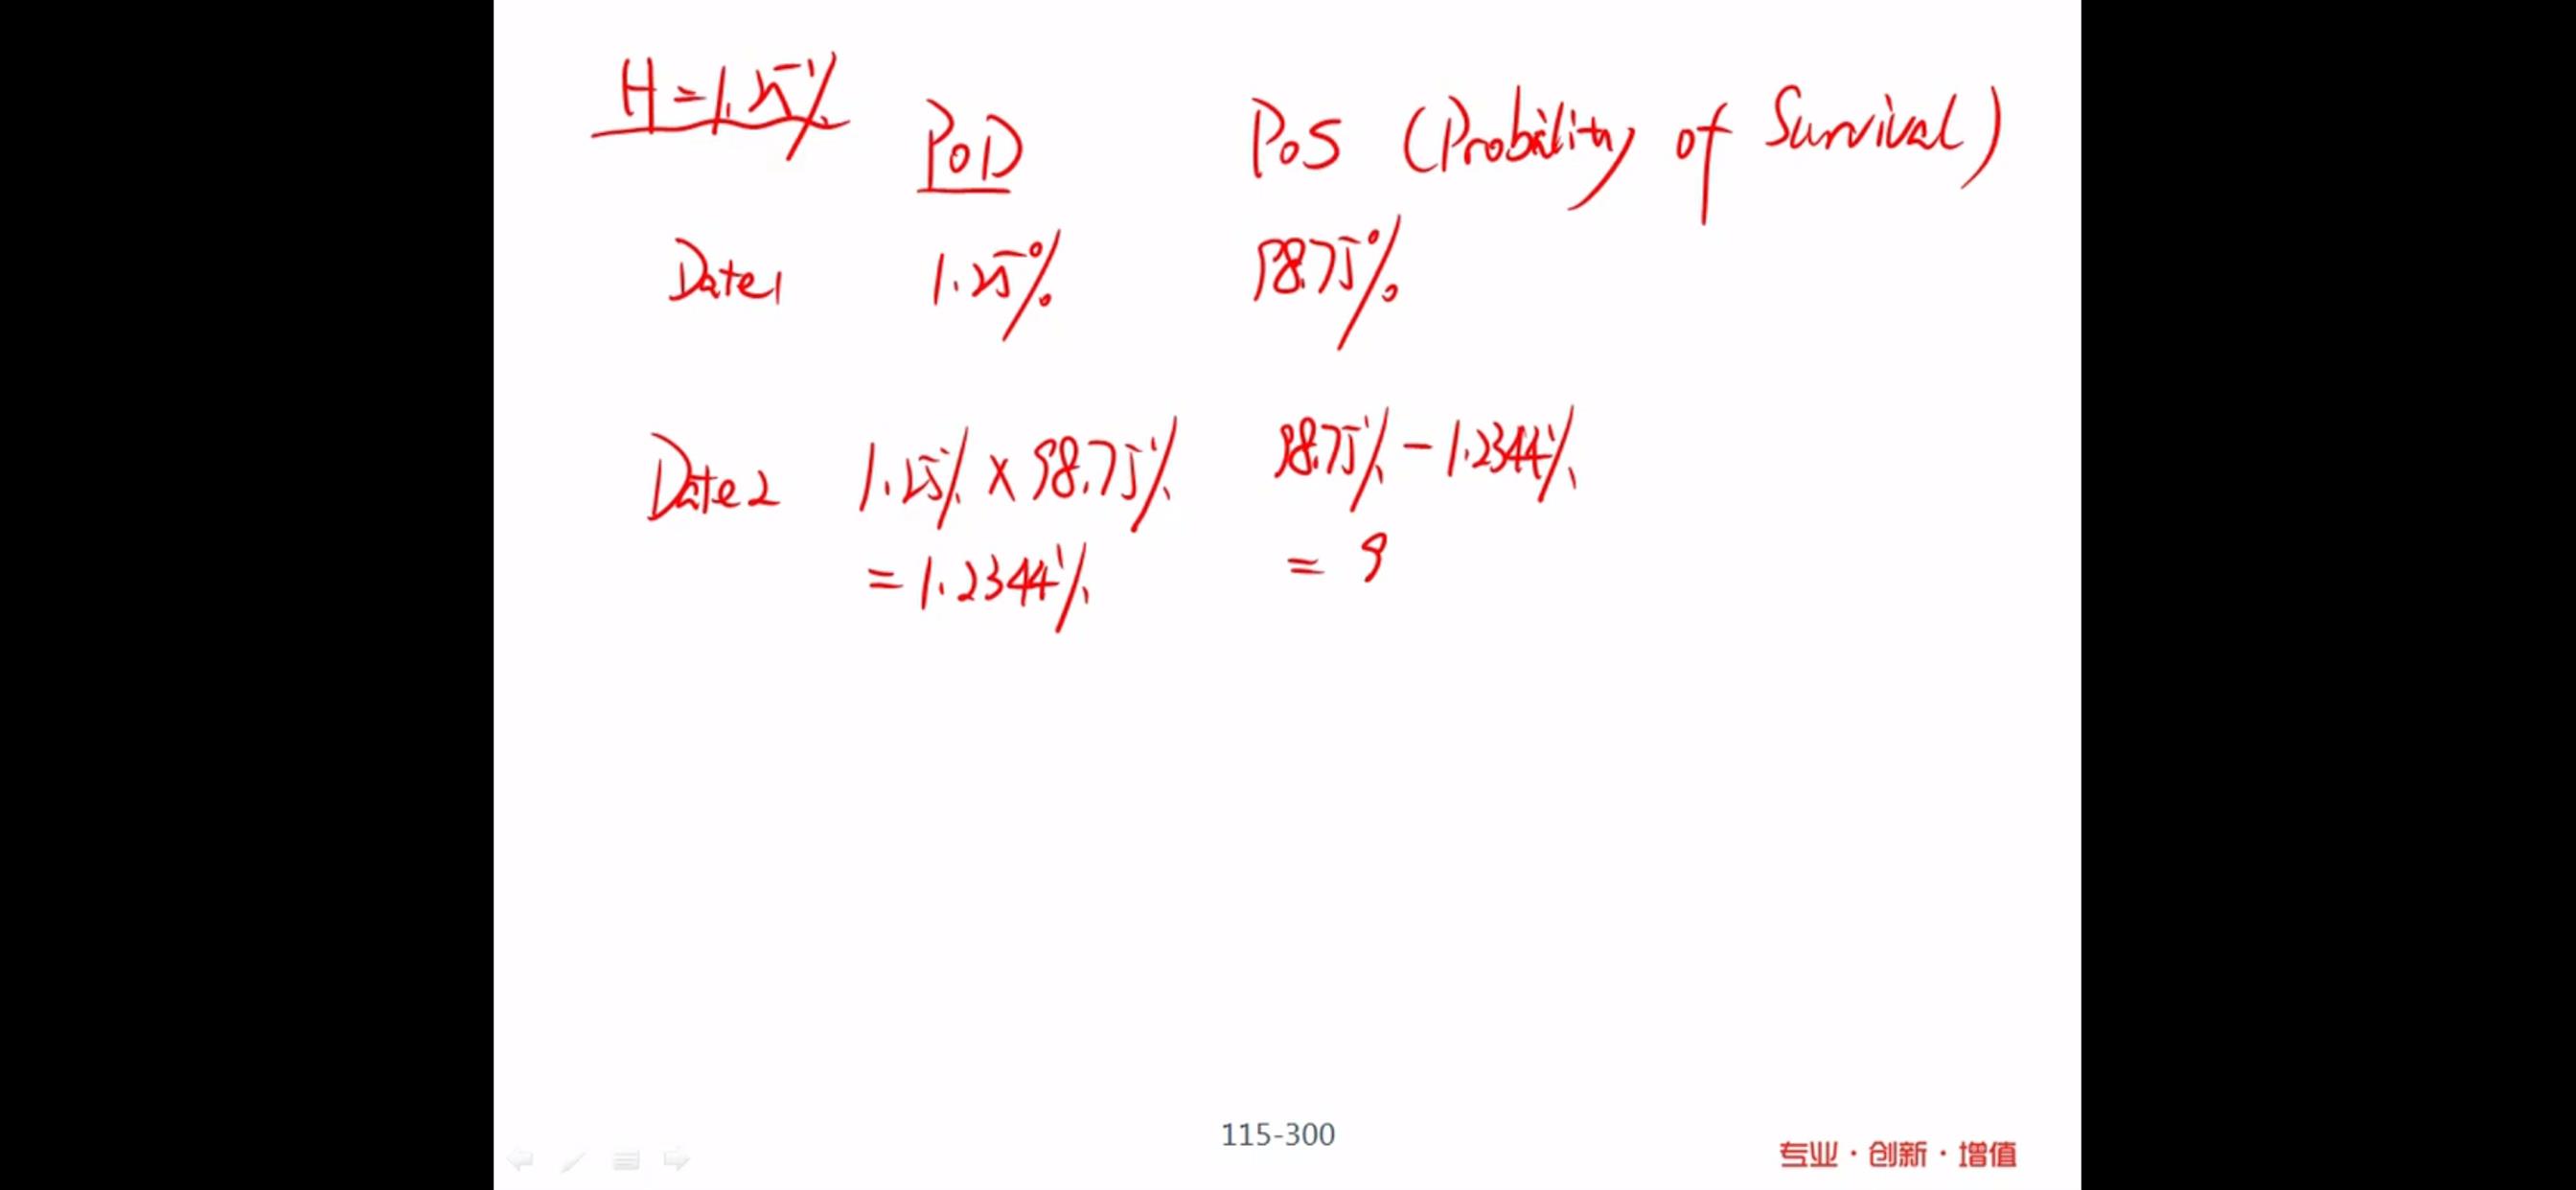 H=1.25%
POD POS (Probability of Survival)
Date1 1.25% 98.75%
Date2 1.25% × 98.75% 98.75% - 1.2344%
= 1.2344% = 9
115-300
专业·创新·增值